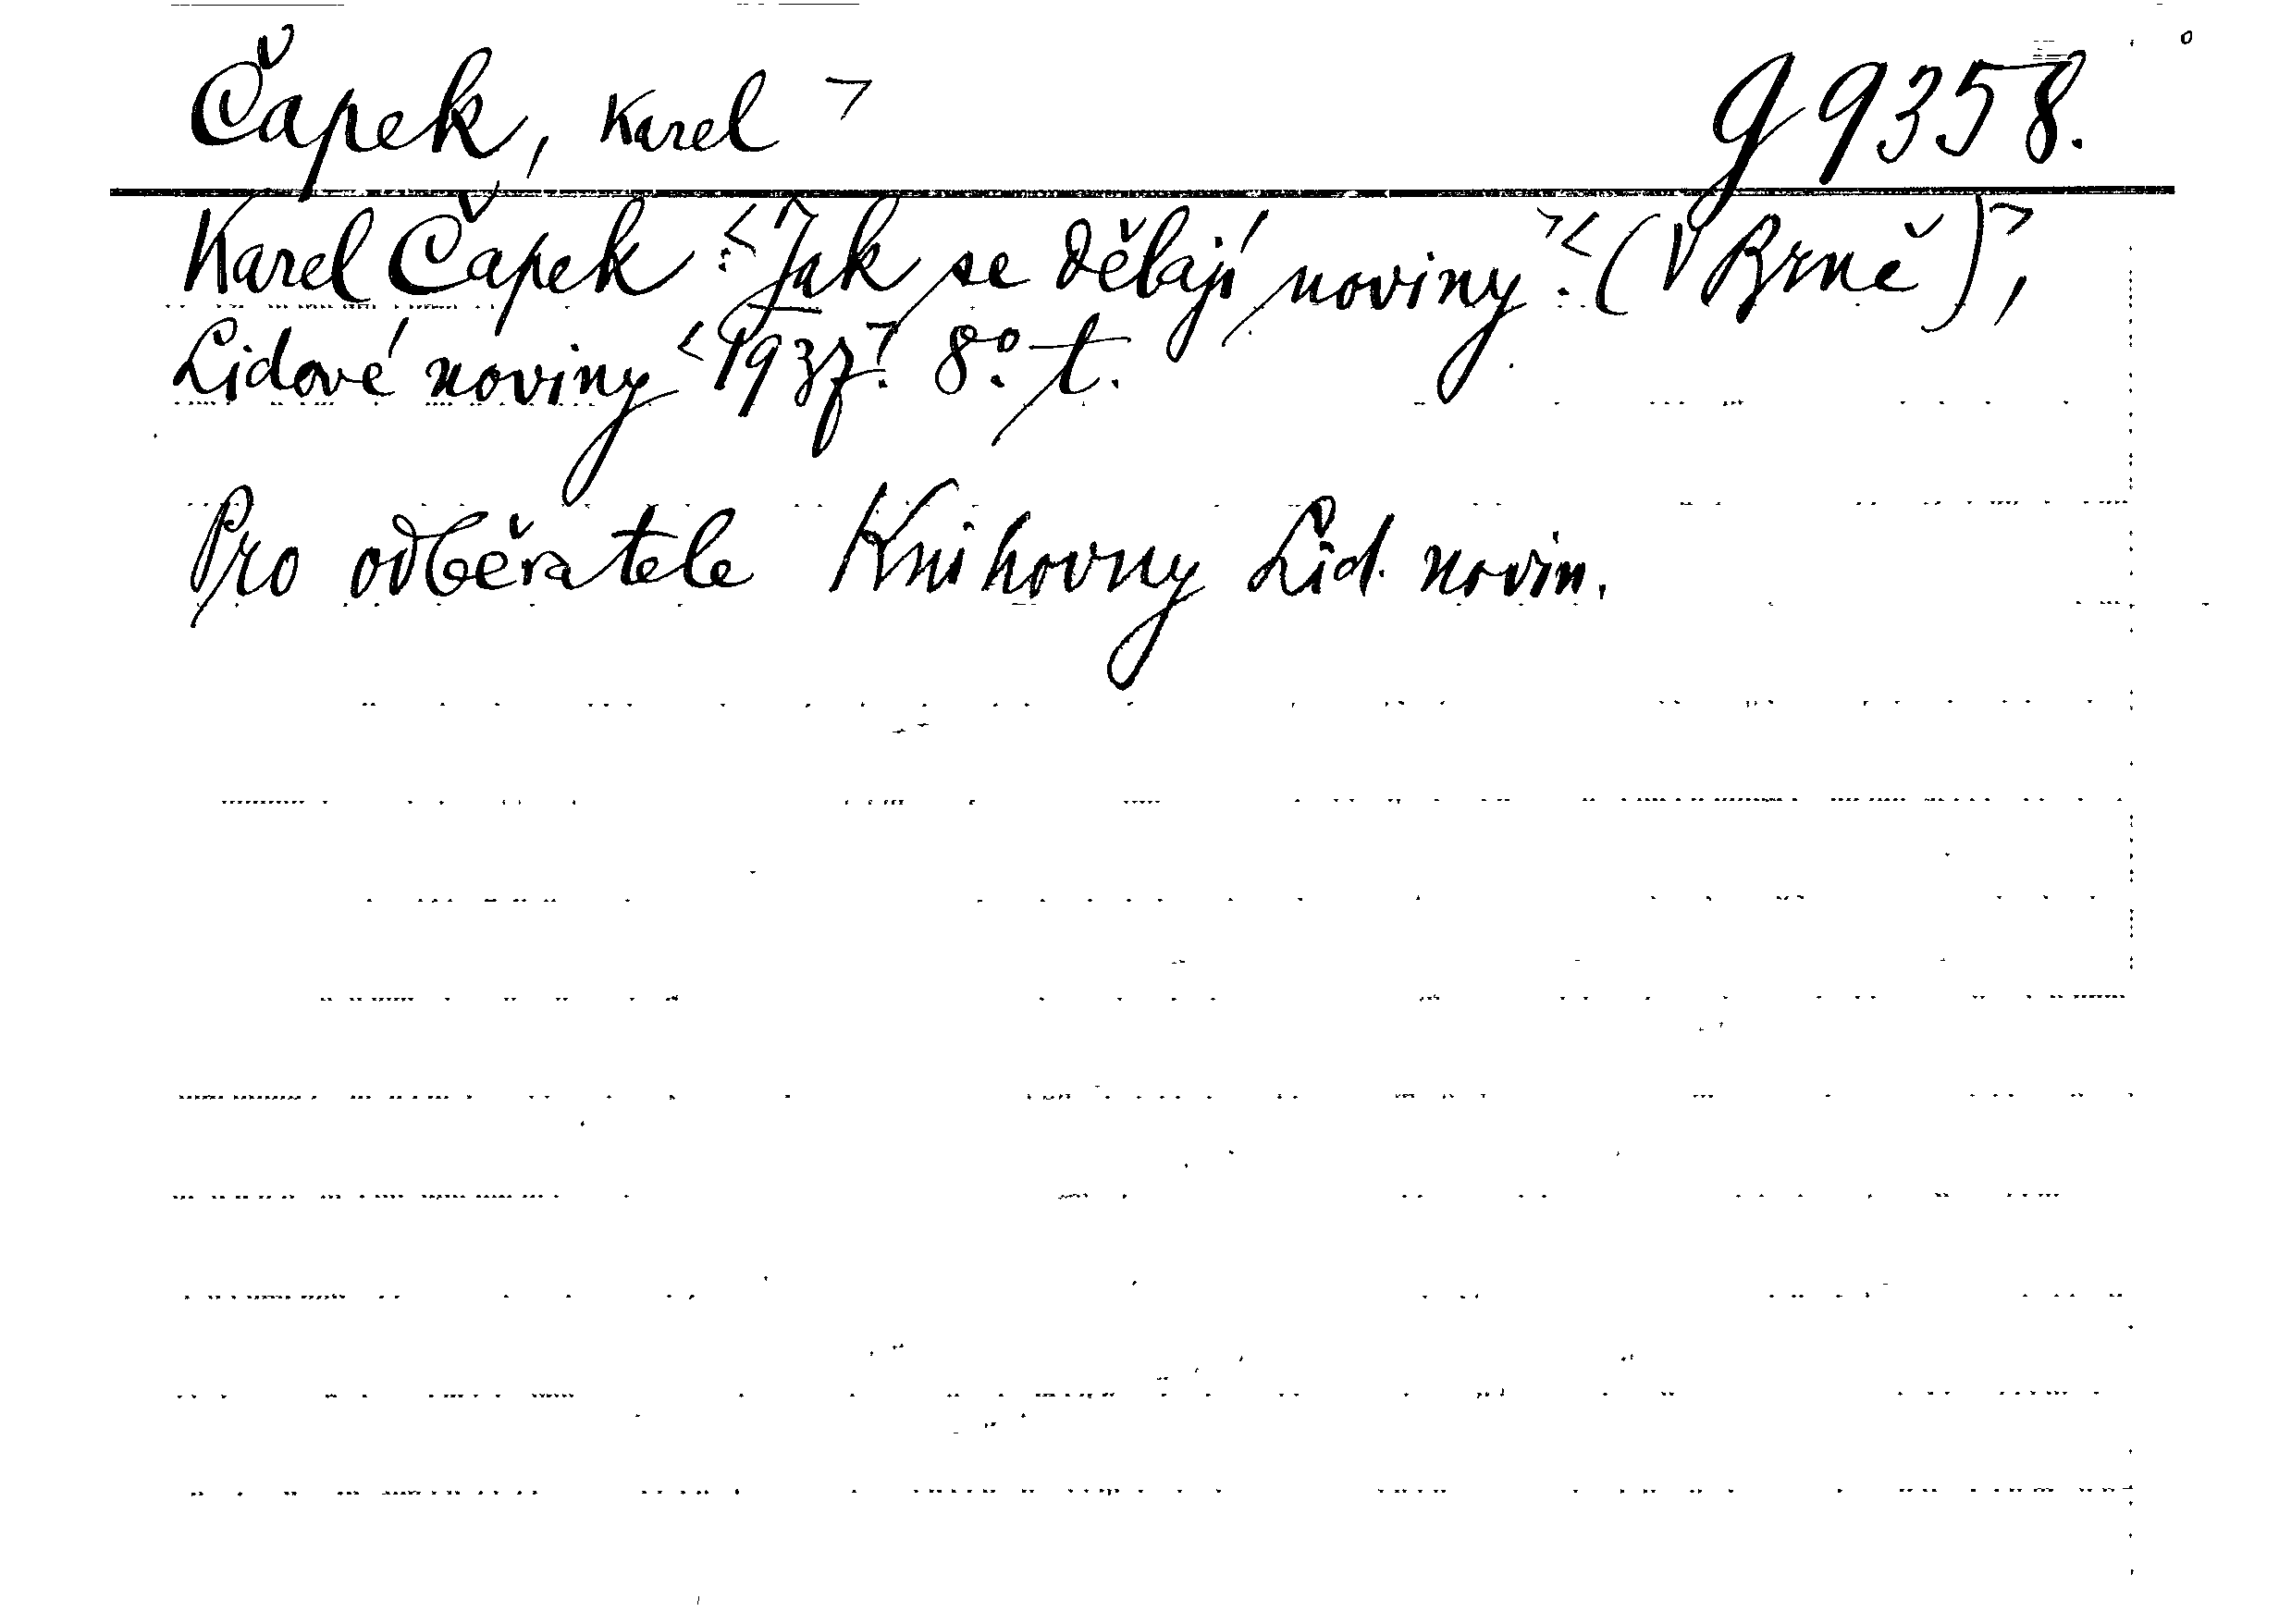 Čapek, Karel ┐ g 9358.
Karel Čapek :< Jak se dělají noviny >.< (V Brně) ┐,
Lidové noviny < 1937 ┐. 8°. t.
Pro odběratele Knihovny Lid. novin.